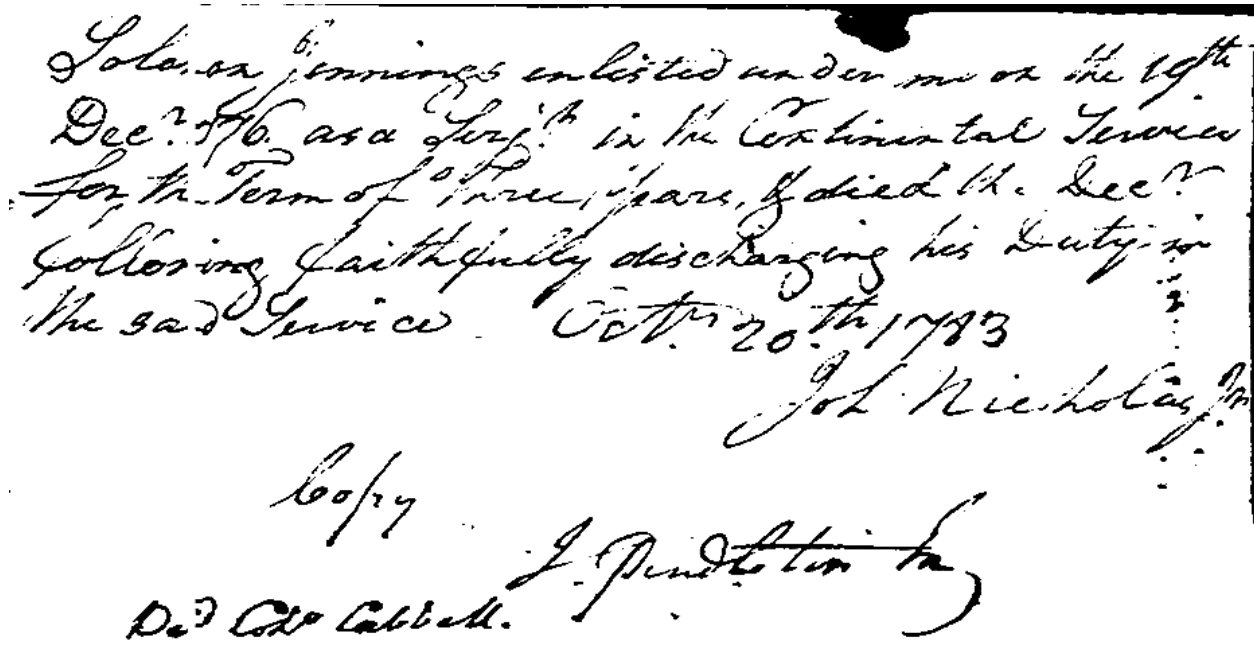 Solomon Jennings enlisted under me on the 19th
Decr. 76 as a Serjt. in the Continental Service
for the Term of Three Years, & died the Decr
following faithfully discharging his Duty in
the said Service Octr. 20th 1783
Joh Nicholas Jr
Copy
J. Pendleton Jr
Ded Colo Cabbell.